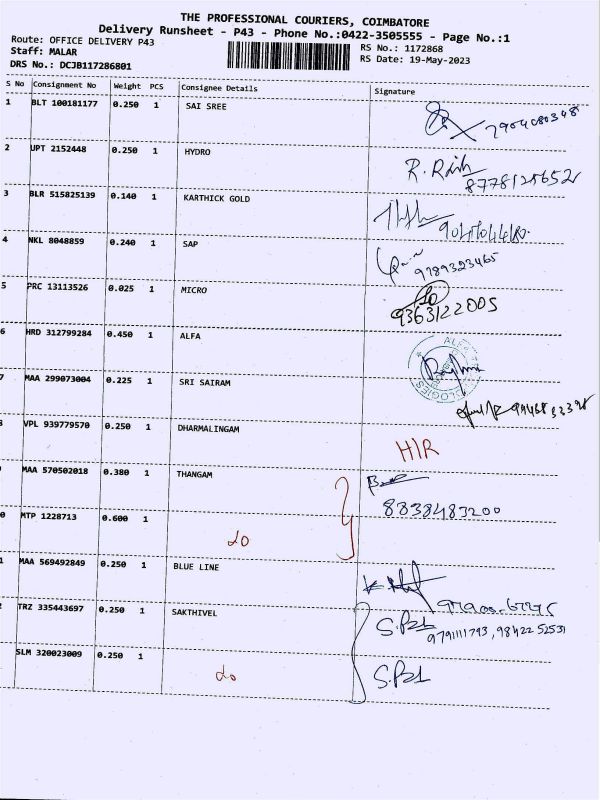 THE PROFESSIONAL COURIERS, COIMBATORE
Delivery Runsheet - P43 - Phone No.:0422-3505555 - Page No.:1
Route: OFFICE DELIVERY P43
RS No.: 1172868
Staff: MALAR
RS Date: 19-May-2023
DRS No.: DCJB117286801
S No Consignment No Weight PCS Consignee Details Signature
1 BLT 100181177 0.250 1 SAI SREE
2 UPT 2152448 0.250 1 HYDRO
8778125652
3 BLR 515825139 0.140 1 KARTHICK GOLD
4 NKL 8048859 0.240 1 SAP
9789323465
5 PRC 13113526 0.025 1 MICRO
9363122005
6 HRD 312799284 0.450 1 ALFA
7 MAA 299073004 0.225 1 SRI SAIRAM
VPL 939779570 0.250 1 DHARMALINGAM
MAA 570502018 0.380 1 THANGAM
8838483200
0 MTP 1228713 0.600 1
do
1 MAA 569492849 0.250 1 BLUE LINE
TRZ 335443697 0.250 1 SAKTHIVEL
9791111793, 9842252531
SLM 320023009 0.250 1
do